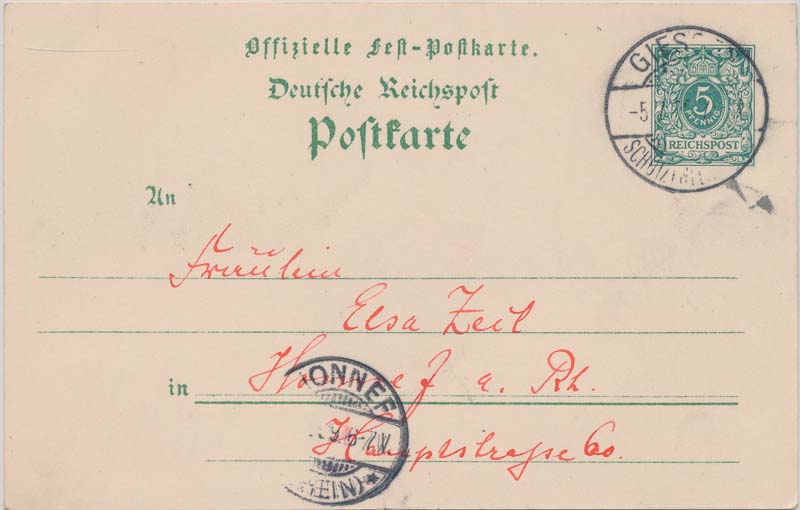 Offizielle Fest-Postkarte.
Deutsche Reichspost
Postkarte
5
PFENNIG
REICHSPOST
An
Fräulein
Elsa Zeil
in Honnef a. Rh.
Hauptstrasse 60.
ONNEF